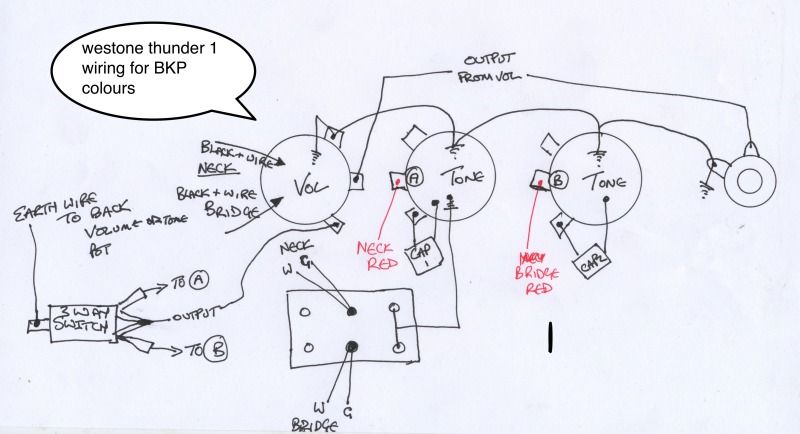 westone thunder 1
wiring for BKP
colours
OUTPUT
FROM VOL
BLACK + WIRE
NECK
BLACK + WIRE
BRIDGE
VOL
A
TONE
B
TONE
EARTH WIRE
TO BACK
VOLUME OR TONE
POT
NECK
RED
CAP
1
BRIDGE
RED
CAP2
TO A
3 WAY
SWITCH
OUTPUT
TO B
NECK
W G
W G
BRIDGE